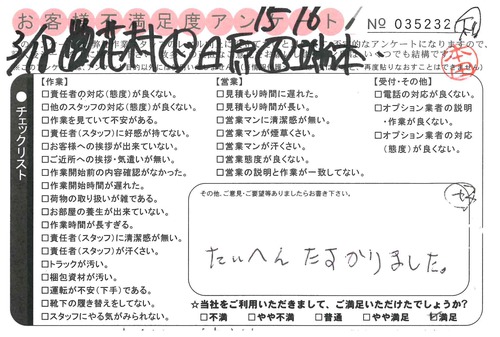 お客様不満足度アンケート
15 16
No 035232
チェックリスト
【作業】
□責任者の対応(態度)が良くない。
□他のスタッフの対応(態度)が良くない。
□作業を見ていて不安がある。
□責任者(スタッフ)に好感が持てない。
□お客様への挨拶が出来ていない。
□ご近所への挨拶・気遣いが無い。
□作業開始前の内容確認がなかった。
□作業開始時間が遅れた。
□荷物の取り扱いが雑である。
□お部屋の養生が出来ていない。
□作業時間が長すぎる。
□責任者(スタッフ)に清潔感が無い。
□責任者(スタッフ)が汗くさい。
□トラックが汚い。
□梱包資材が汚い。
□運転が不安(下手)である。
□靴下の履き替えをしてない。
□スタッフにやる気がみられない。
【営業】
□見積もり時間に遅れた。
□見積もり時間が長い。
□営業マンに清潔感が無い。
□営業マンが煙草くさい。
□営業マンが汗くさい。
□営業態度が良くない。
□営業の説明と作業が一致してない。
【受付・その他】
□電話の対応が良くない。
□オプション業者の説明
・作業が良くない。
□オプション業者の対応
(態度)が良くない。
その他、ご意見・ご要望等ありましたらお書き下さい。
たいへん たすかりました。
☆当社をご利用いただきまして、ご満足いただけたでしょうか?
□不満 □やや不満 □普通 □やや満足 □満足